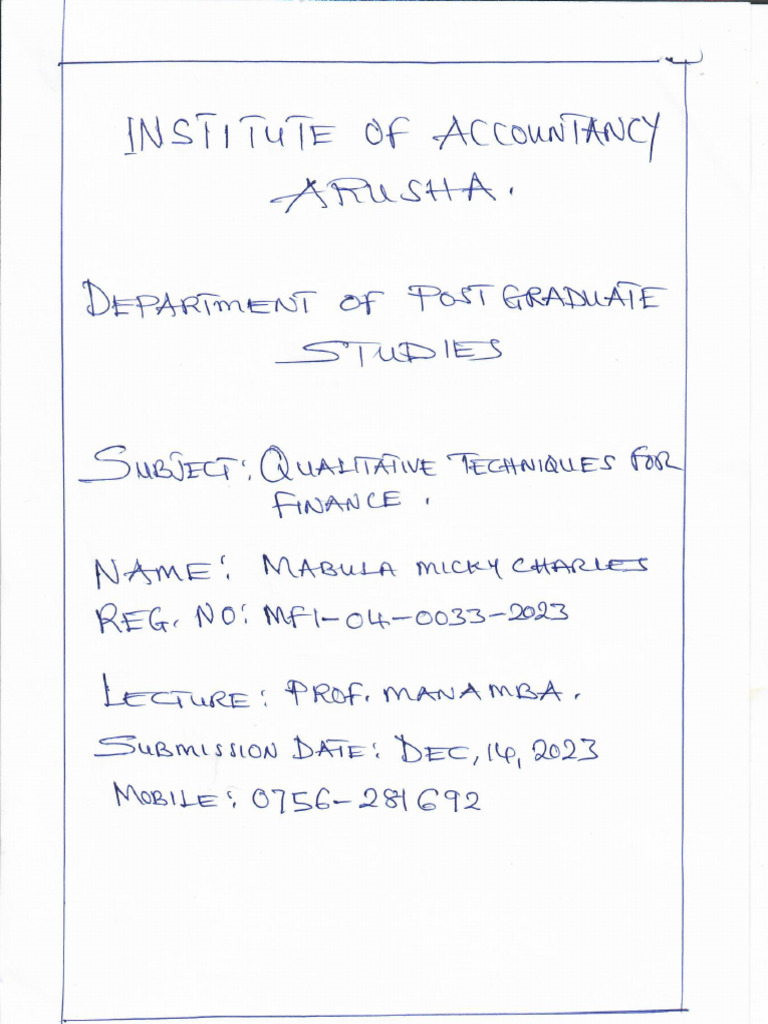 INSTITUTE OF ACCOUNTANCY
ARUSHA.
DEPARTMENT OF POSTGRADUATE
STUDIES
SUBJECT: QUALITATIVE TECHNIQUES FOR
FINANCE.
NAME: MABULA MICKY CHARLES
REG. NO: MFI-04-0033-2023
LECTURE: PROF. MANAMBA.
SUBMISSION DATE: DEC, 14, 2023
MOBILE: 0756-281692